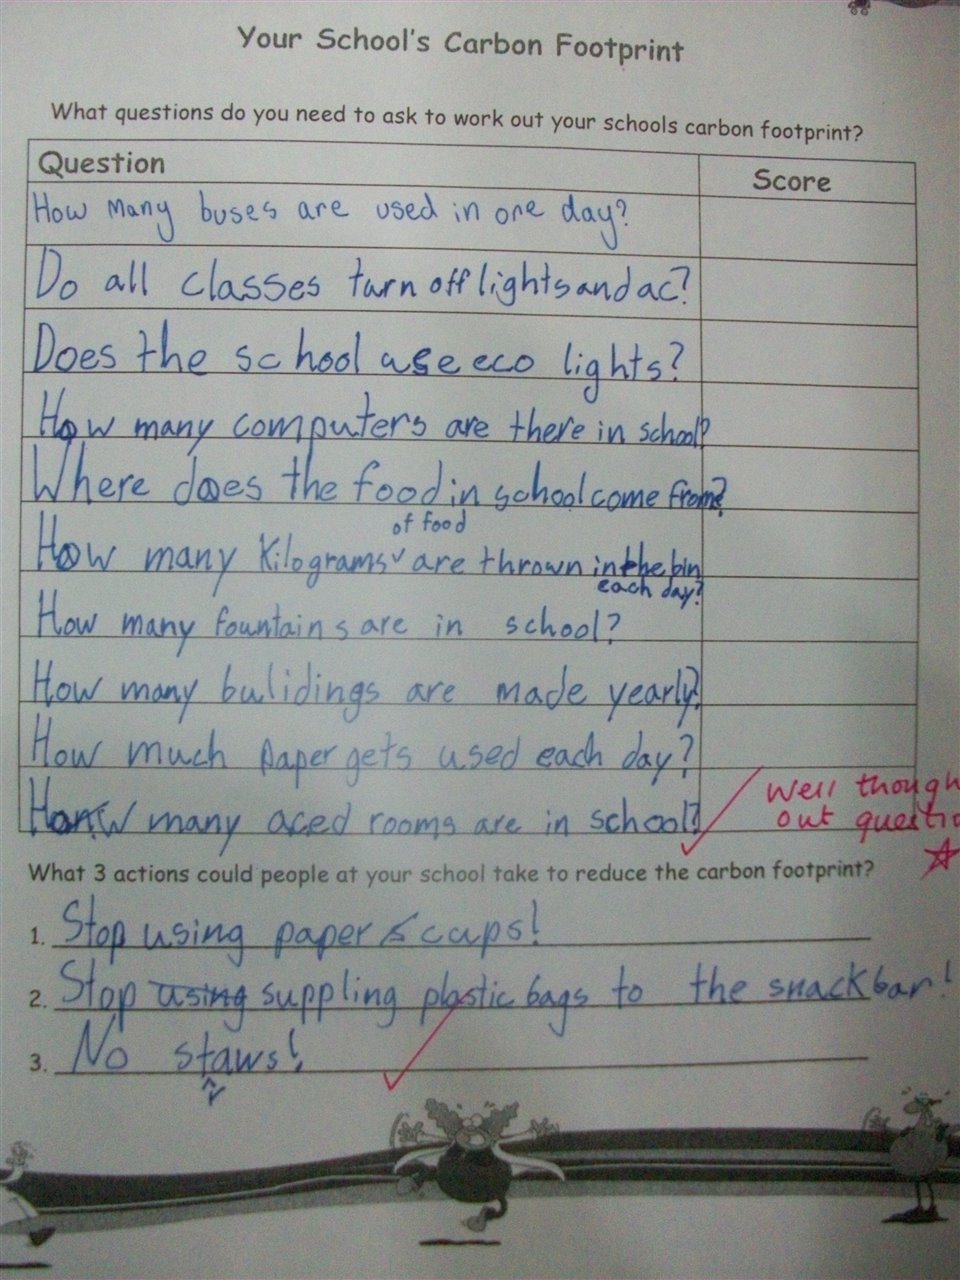 Your School's Carbon Footprint
What questions do you need to ask to work out your schools carbon footprint?
Question Score
How many buses are used in one day?
Do all classes turn off lights and ac?
Does the school use eco lights?
How many computers are there in school?
Where does the food in school come from?
of food
How many Kilograms are thrown in the bin
each day?
How many fountains are in school?
How many bulidings are made yearly?
How much paper gets used each day?
How many aced rooms are in school?
Well though
out questio
What 3 actions could people at your school take to reduce the carbon footprint?
1. Stop using paper cups!
2. Stop using suppling plastic bags to the snack bar!
3. No staws!
r